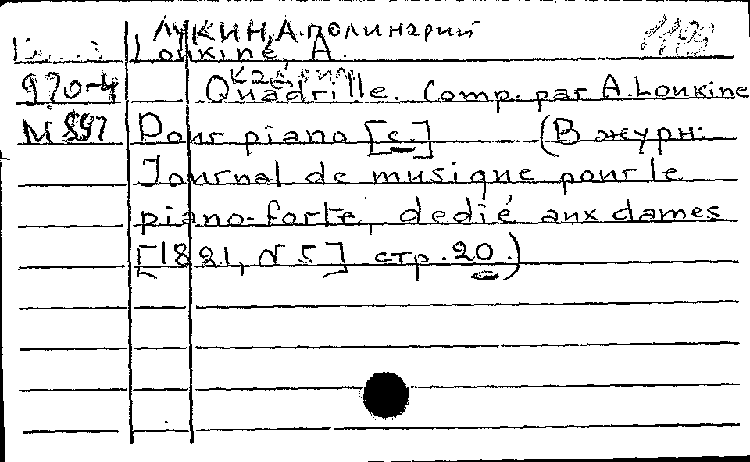 ЛУКИН, Аполинарий
Loukine, A.
кадриль
970-4 Quadrille. Comp. par A. Loukine
M 897 Pour piano [c.] (В журн:
Journal de musique pour le
piano-forte, dedié aux dames
[1821, N 5] стр. 20.)